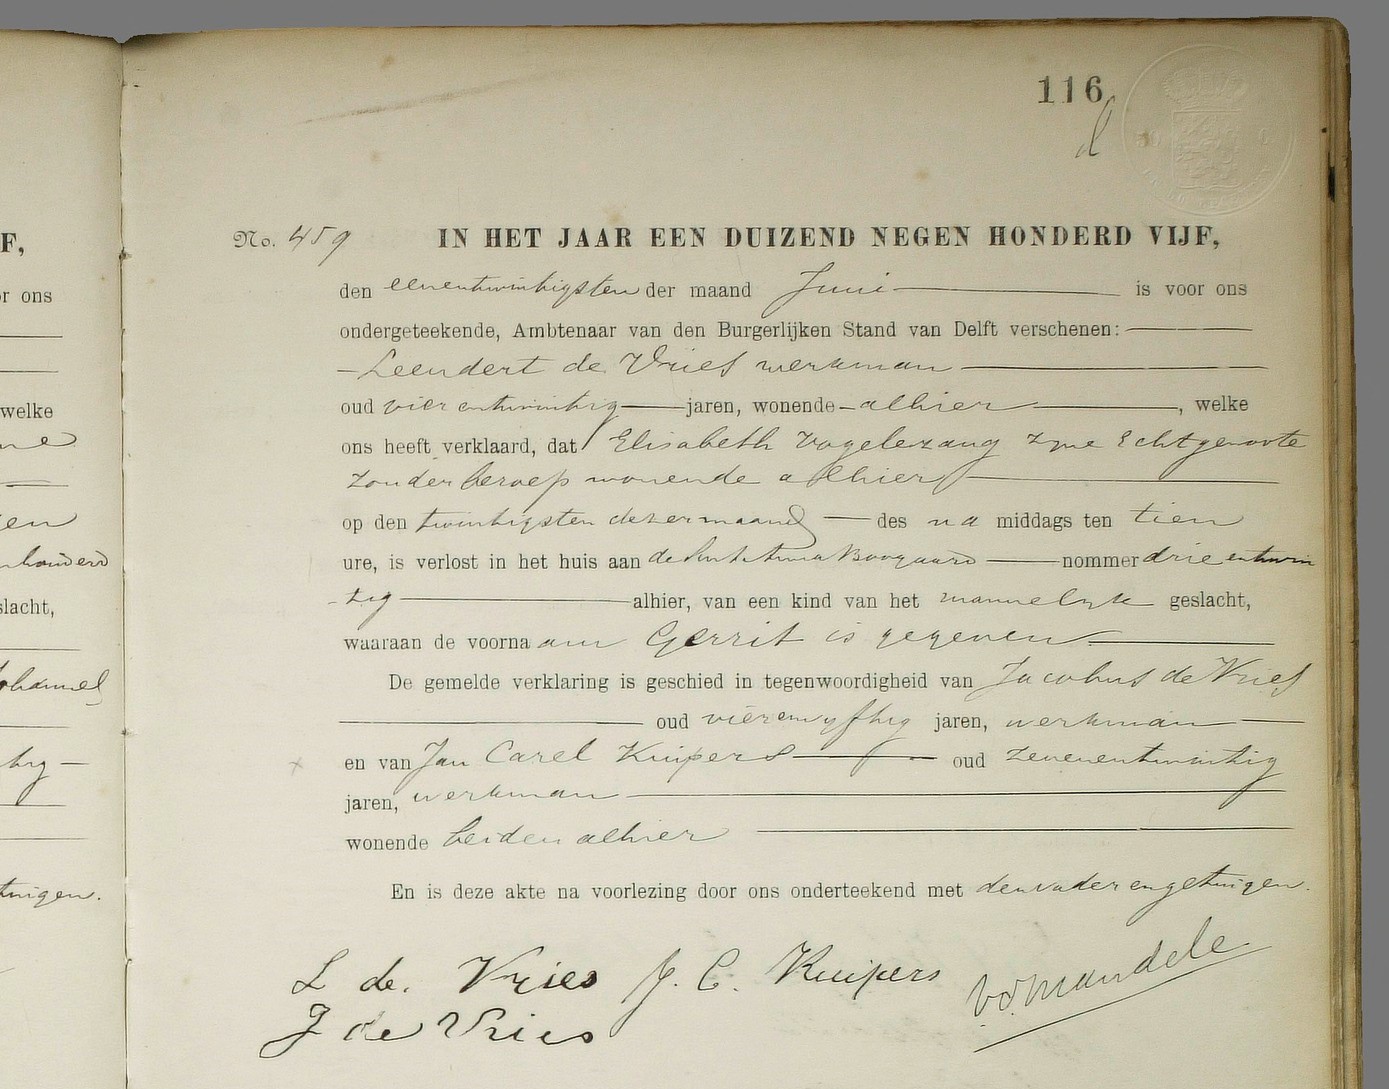 116
F,
No. 459 IN HET JAAR EEN DUIZEND NEGEN HONDERD VIJF,
or ons
den eenentwintigsten der maand Juni is voor ons
ondergeteekende, Ambtenaar van den Burgerlijken Stand van Delft verschenen:
Leendert de Vries werkman
welke
oud vierentwintig jaren, wonende alhier, welke
ons heeft verklaard, dat Elisabeth Vogelezang zyne Echtgenoote
zonder beroep wonende alhier
op den twintigsten dezer maand des na middags ten tien
honderd
ure, is verlost in het huis aan de Boogaard nommer drie entwin
slacht,
tig alhier, van een kind van het mannelyk geslacht,
waaraan de voorna am Gerrit is gegeven
De gemelde verklaring is geschied in tegenwoordigheid van Jacobus de Vries
oud vierenvyftig jaren, werkman
en van Jan Carel Kuipers oud zevenentwintig
jaren, werkman
wonende beiden alhier
tuigen.
En is deze akte na voorlezing door ons onderteekend met den vader en getuigen.
L de. Vries J. C. Kuipers v. d. Mandele
J de Vries